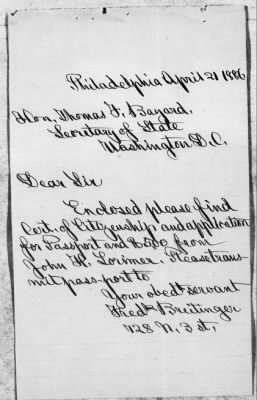 Philadelphia April 21 1886.
Hon. Thomas F. Bayard.
Secretary of State
Washington D.C.
Dear Sir
Enclosed please find
Cert. of Citizenship and application
for Passport and $5.00 from
John H. Lorimer. Please trans
mit passport to
Your obedt servant
Fredk Breitinger
728 N. 3 st.